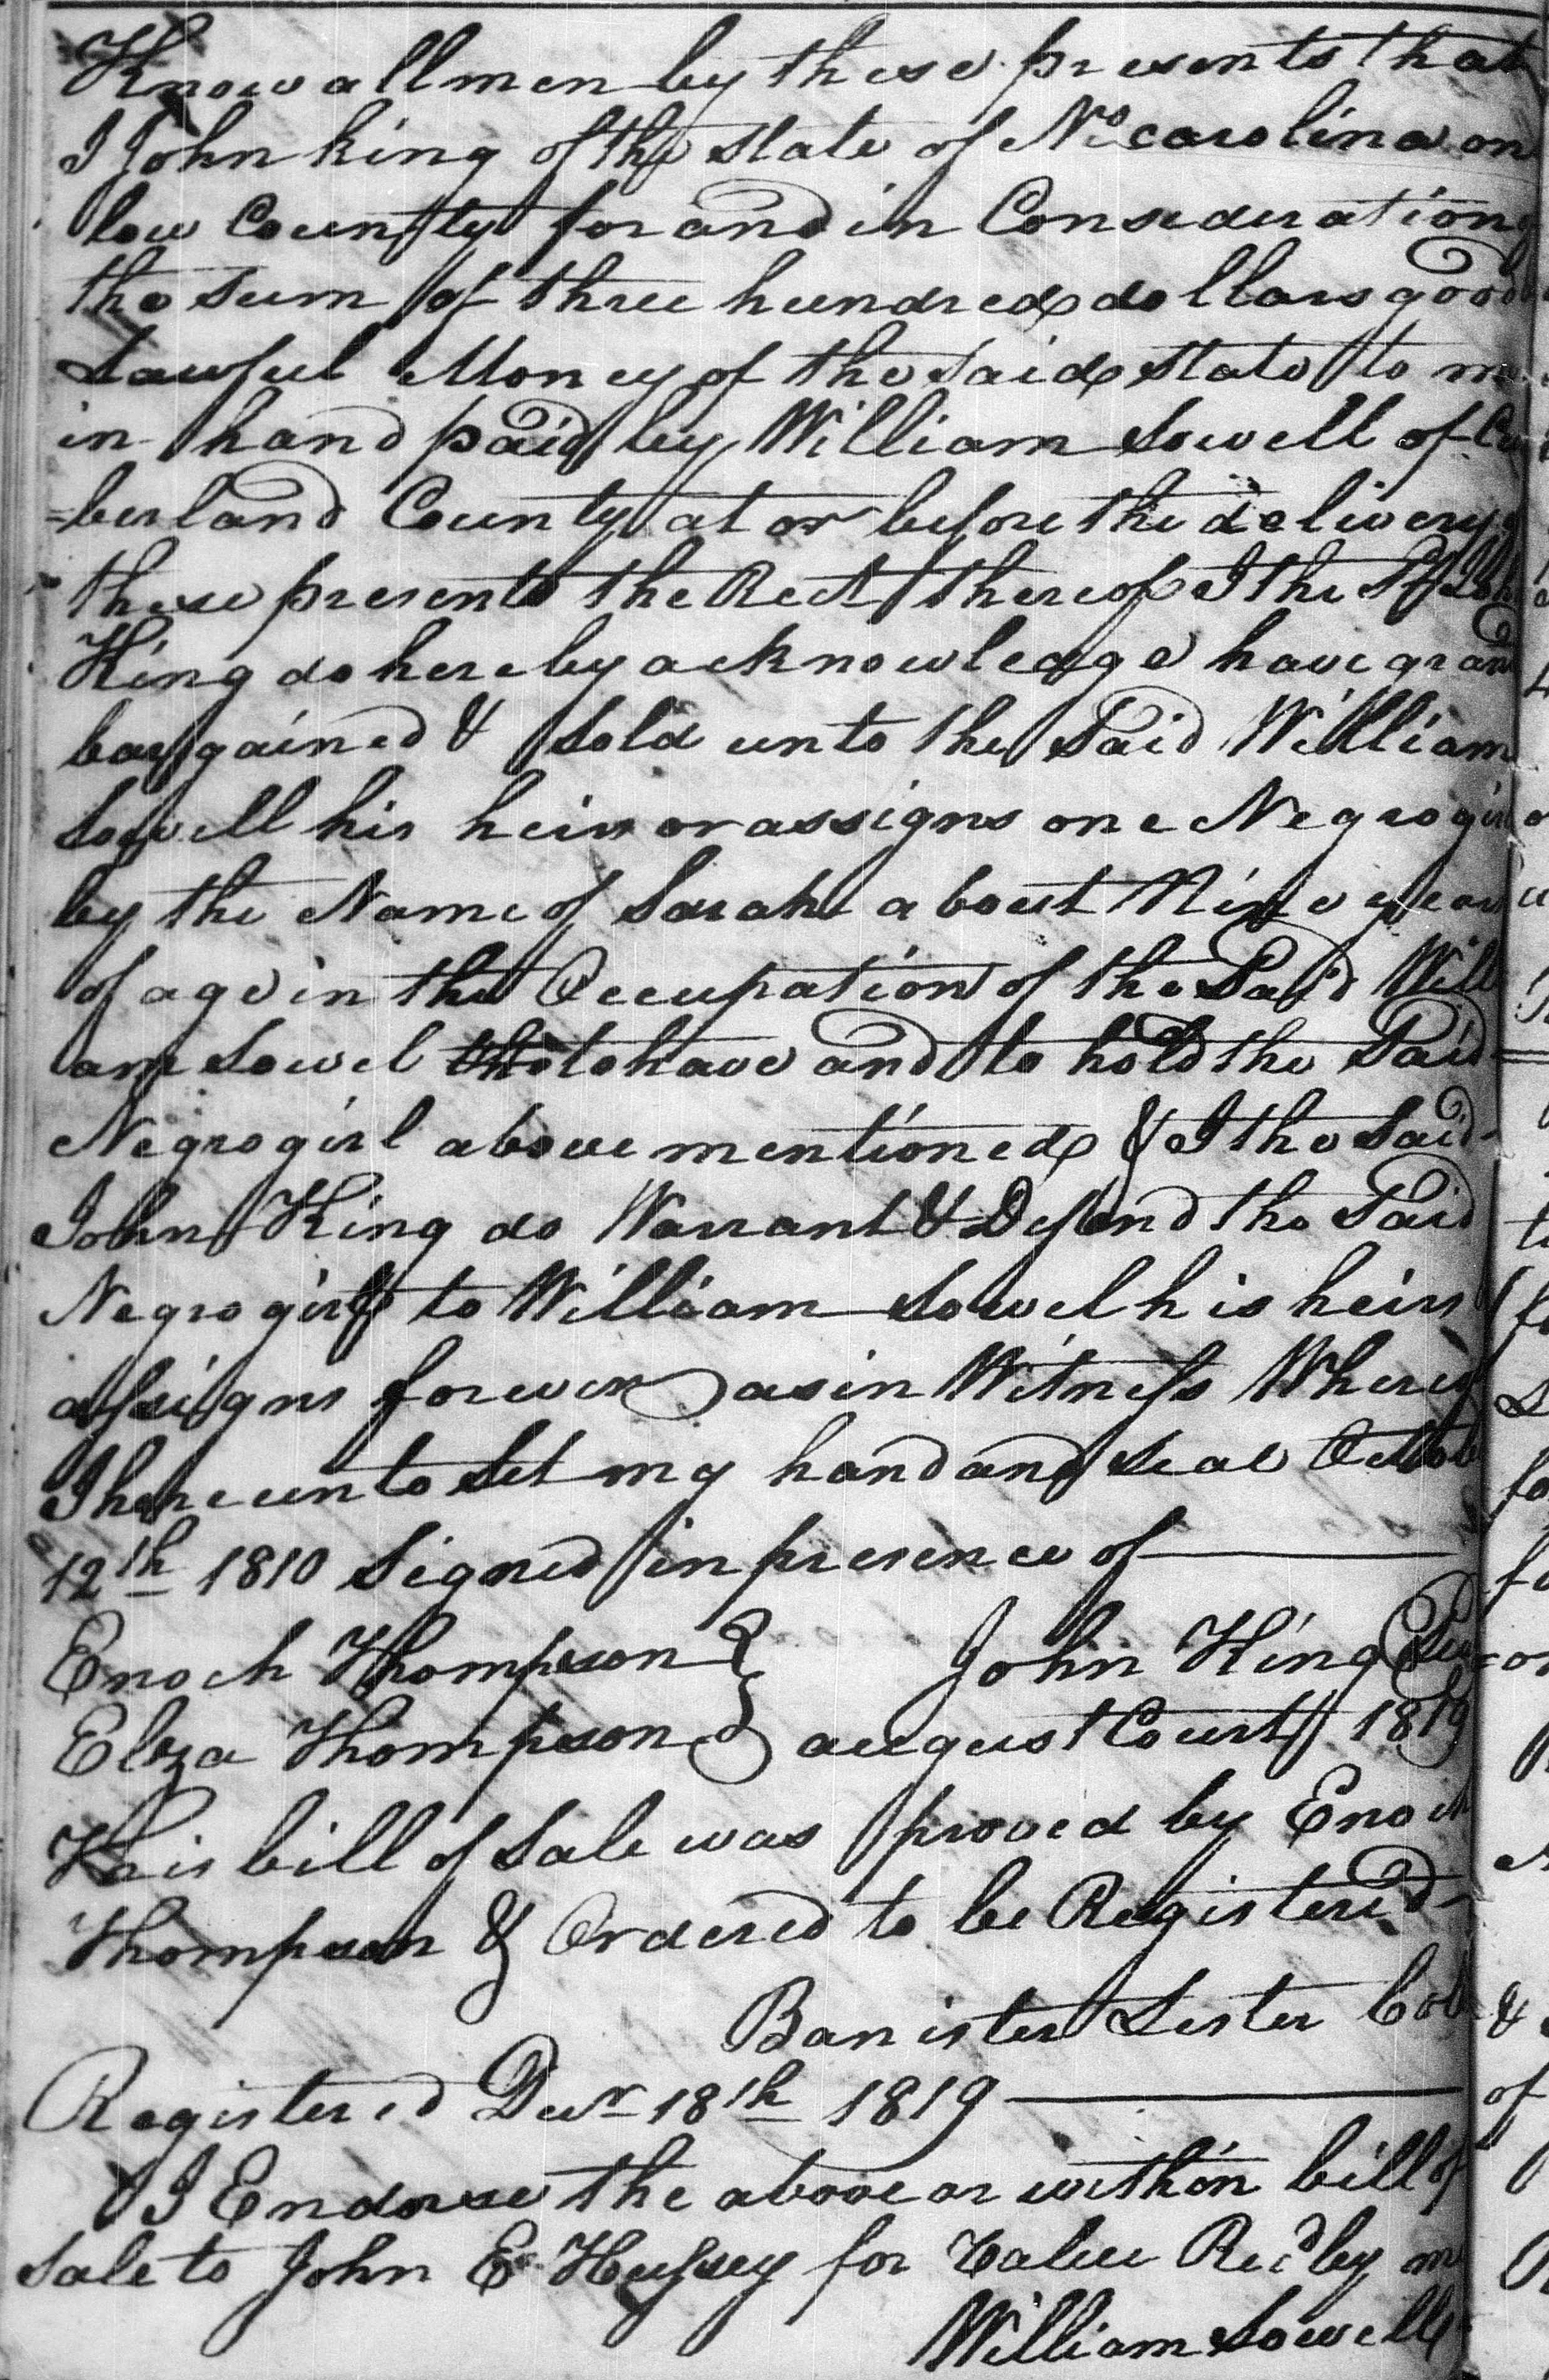 Know all men by these presents that
I John King of the state of No. carolina on
low County for and in Consideration
the sum of three hundred dollars good
Lawful Money of the said state to me
in hand paid by William Sowell of Cu
=berland County at or before the delivery
these presents the Rect thereof I the Sd John
King do hereby acknowledge have grant
bargained & Sold unto the Said William
Sowell his heirs or assigns one Negro girl
by the Name of Sarah about Nine years
of age in the Occupation of the Said Will
am Sowel to have and to hold the Said
Negro girl above mentioned & I the Said
John King do Warrant & Defend the Said
Negro girl to William Sowel his heirs
assigns forever as in Witness Whereof
I hereunto Set my hand and seal October
12th 1810 Signed in presence of
Enoch Thompson } John King Seal
Elza Thompson } august Court 1819
This bill of Sale was proved by Enoch
Thompson & Ordered to be Registered
Banister Lester
Registered Decr 18th 1819
I Endorse the above or within bill of
Sale to John E Hussey for Value Recd by me
William Sowell